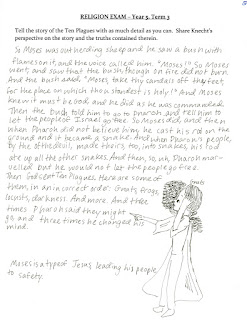 RELIGION EXAM – Year 5, Term 3
Tell the story of the Ten Plagues with as much detail as you can. Share Knecht's
perspective on the story and the truths contained therein.
So Moses was out herding sheep and he saw a bush with
flames on it, and the voice called him. "Moses!" So Moses
went, and saw that the bush, though on fire did not burn.
And the bush said "Moses, take thy sandals off thy feet
for the place on which thou standest is holy!" And Moses
knew it must be God, and he did as he was commanded.
Then the bush told him to go to Pharoah, and tell him to
let the people of Israel go free. So Moses did, and then
when Pharoh did not believe him he cast his rod on the
ground and it became a snake. And when Pharoh's people,
by the of the devil, made theirs, too, into snakes, his rod
ate up all the other snakes. And then, so, uh, Pharoh mar-
velled but he would not let the people go free.
Then God sent Ten Plagues. Here are some of
them, in an incorrect order. Gnats, Frogs,
locusts, darkness. And more. And three
times Pharoh said they might
go and three times he changed his
mind.
Moses is a type of Jesus, leading his people
to safety.